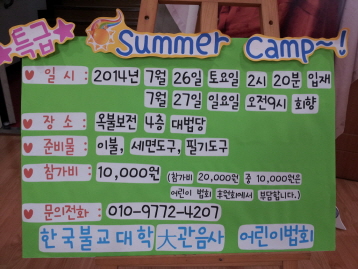 특급 Summer Camp~!
일시 : 2014년 7월 26일 토요일 2시 20분 입재
7월 27일 일요일 오전9시 회향
장소 : 옥불보전 4층 대법당
준비물 : 이불, 세면도구, 필기도구
참가비 : 10,000원 (참가비 20,000원 중 10,000원은
어린이 법회 후원회에서 부담합니다.)
문의전화 : 010-9772-4207
한국불교대학 大관음사 어린이법회